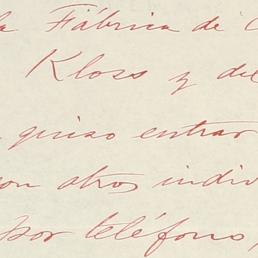 la Fábrica de C
Kloss y del
quiso entrar
con otros indiv
por teléfono,